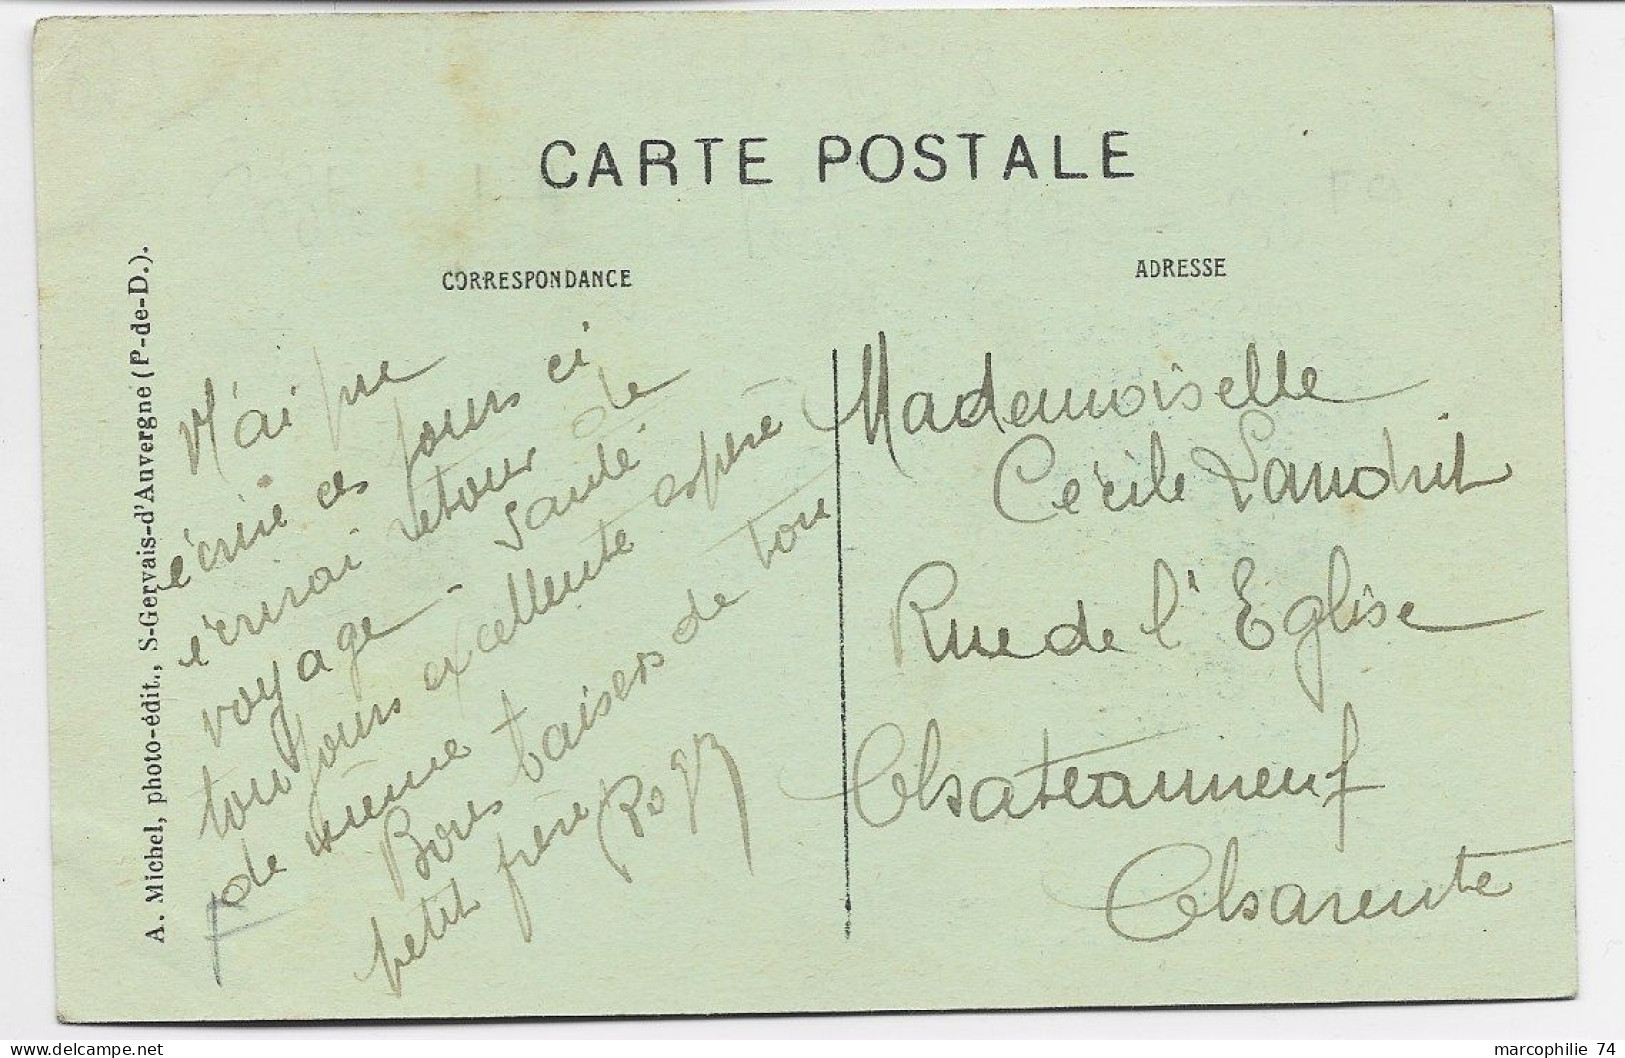 CARTE POSTALE
CORRESPONDANCE
ADRESSE
A. Michel, photo-édit., S-Gervais-d'Auvergne (P-de-D.).
N'ai pu
écrire ces jours ci
écrirai retour de
voyage - Santé
toujours excellente espère
de même
Bons baisers de ton
petit frère Roger
Mademoiselle
Cécile Landrit
Rue de l'Eglise
Chateauneuf
Charente
marcophilie 74